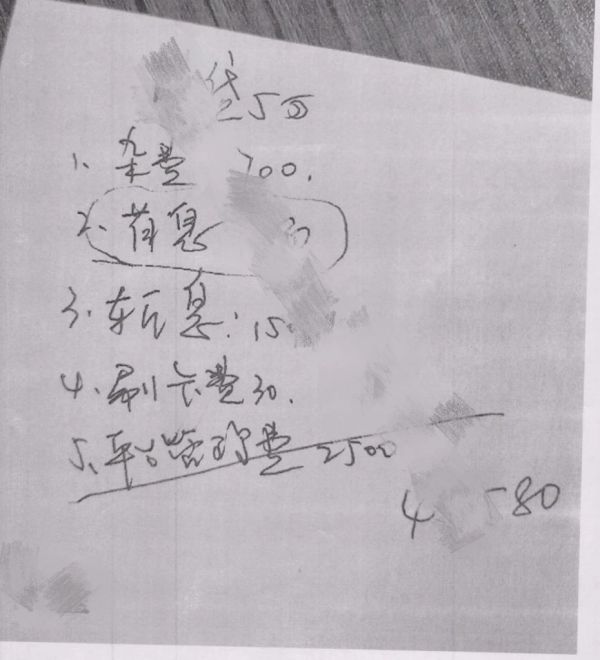 贷5万
1、杂费 700.
2、首息
3、车后息：15
4、刷卡费30.
5、平台管理费 2500
4 580